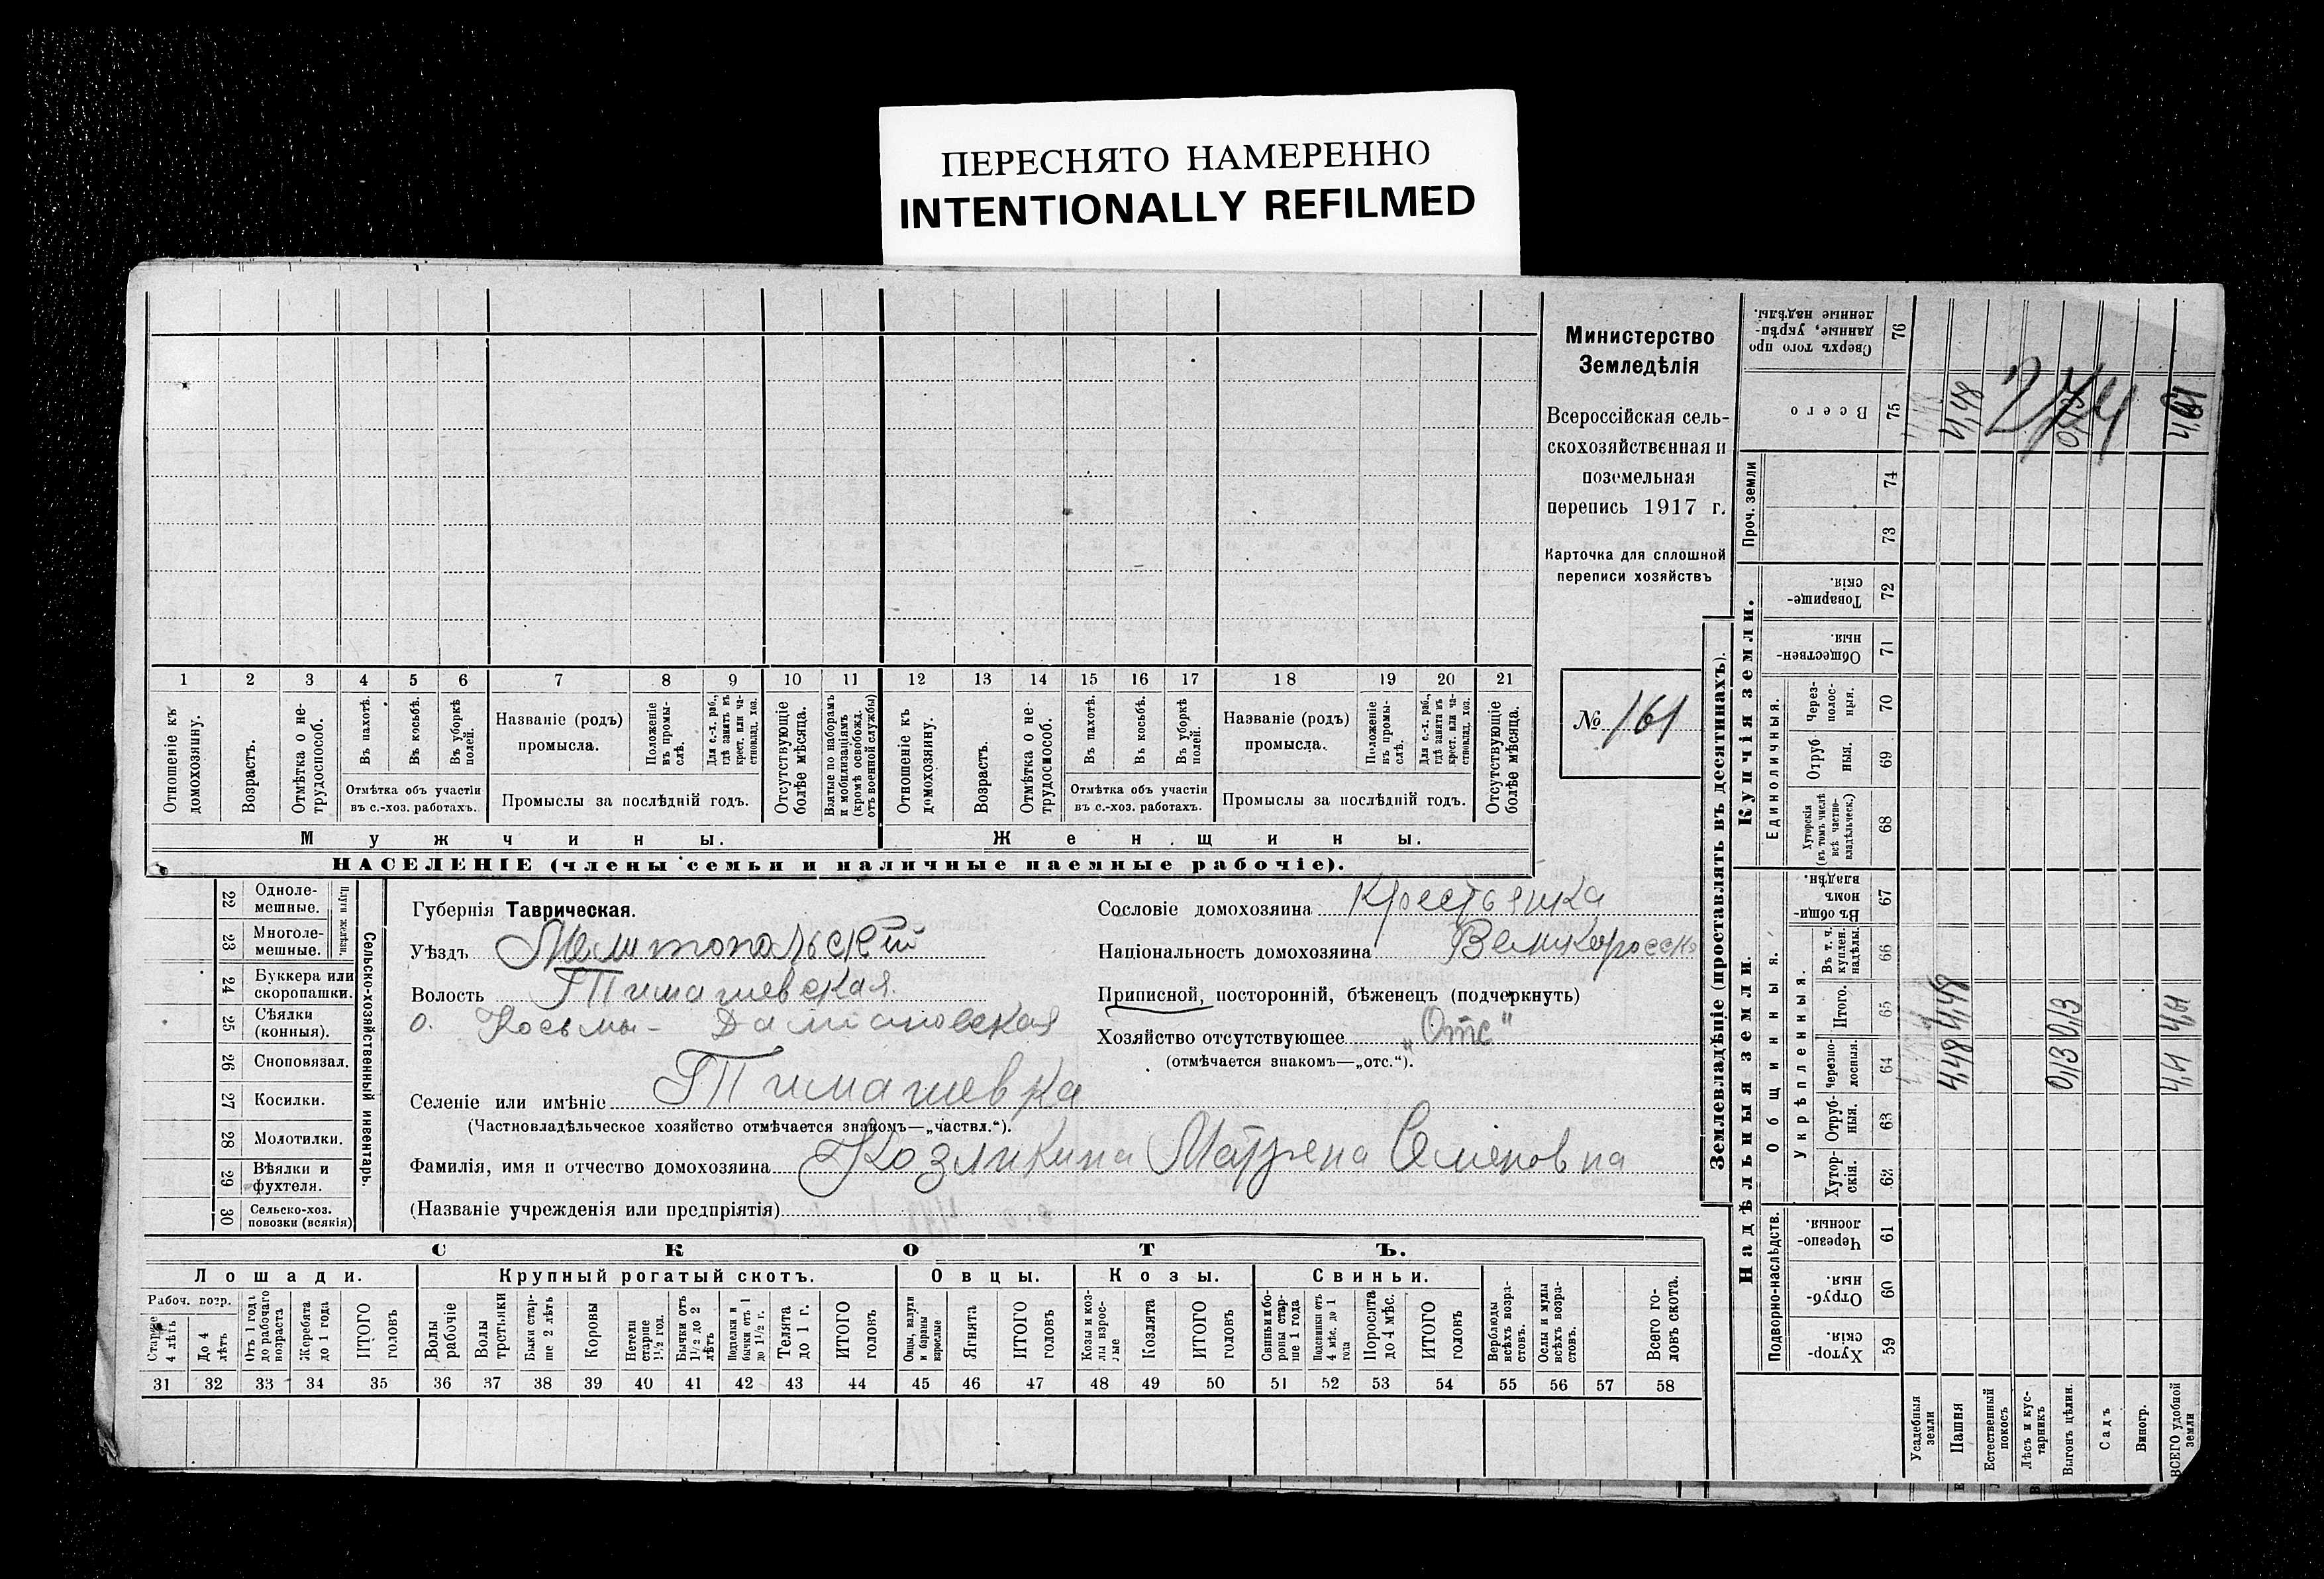 ПЕРЕСНЯТО НАМЕРЕННО
INTENTIONALLY REFILMED
Министерство
Земледѣлія
Всероссійская сель-
скохозяйственная и
поземельная
перепись 1917 г.
Карточка для сплошной
переписи хозяйствъ
№ 161
1 2 3 4 5 6 7 8 9 10 11 12 13 14 15 16 17 18 19 20 21
Отношеніе къ
домохозяину.
Возрастъ.
Отмѣтка о не-
трудоспособ.
Въ пахотѣ.
Въ косьбѣ.
Въ уборкѣ
полей.
Отмѣтка объ участіи
въ с.-хоз. работахъ.
Названіе (родъ)
промысла.
Положеніе
въ промы-
слѣ.
Для с.-х. раб.,
гдѣ занятъ въ
крест. или ча-
стновлад. хоз.
Промыслы за послѣдній годъ.
Отсутствующіе
болѣе мѣсяца.
Взятые по наборамъ
и мобилизаціямъ
(кромѣ освобожд.
отъ военной службы)
Отношеніе къ
домохозяину.
Возрастъ.
Отмѣтка о не-
трудоспособ.
Въ пахотѣ.
Въ косьбѣ.
Въ уборкѣ
полей.
Отмѣтка объ участіи
въ с.-хоз. работахъ.
Названіе (родъ)
промысла.
Положеніе
въ промы-
слѣ.
Для с.-х. раб.,
гдѣ занята въ
крест. или ча-
стновлад. хоз.
Промыслы за послѣдній годъ.
Отсутствующіе
болѣе мѣсяца.
Мужчины.
Женщины.
НАСЕЛЕНІЕ (члены семьи и наличные наемные рабочіе).
22 Одноле-
мешные.
23 Многоле-
мешные.
Плуги желѣзн.
24 Буккера или
скоропашки.
25 Сѣялки
(конныя).
26 Сноповязал.
27 Косилки.
28 Молотилки.
29 Вѣялки и
фухтеля.
30 Сельско-хоз.
повозки (всякія)
Сельско-хозяйственный инвентарь.
Губернія Таврическая.
Уѣздъ Мелитопольскій
Волость Тимашевская.
о. Косьмо-Даміановская
Селеніе или имѣніе Тимашевка
(Частновладѣльческое хозяйство отмѣчается знакомъ—„частвл.“).
Фамилія, имя и отчество домохозяина Козликина Матрена Семеновна
(Названіе учрежденія или предпріятія)
Сословіе домохозяина Крестьянка
Національность домохозяина Великоросск
Приписной, посторонній, бѣженецъ (подчеркнуть)
Хозяйство отсутствующее „Отс“
(отмѣчается знакомъ—„отс.“).
СКОТЪ.
Лошади.
Крупный рогатый скотъ.
Овцы.
Козы.
Свиньи.
Рабоч. возр.
Старше
4 лѣтъ
До 4
лѣтъ
Отъ 1 года
до рабочаго
возраста
Жеребята
до 1 года
ИТОГО
головъ
Волы
рабочіе
Волы
третьяки
Быки стар-
ше 2 лѣтъ
Коровы
Нетели
старше
1½ год.
Бычки отъ
1½ до 2
лѣтъ
Подтелки и
бычки отъ 1
до 1½ г.
Телята
до 1 г.
ИТОГО
головъ
Овцы, валухи
и бараны
взрослые
Ягнята
ИТОГО
головъ
Козы и коз-
лы взрос-
лые
Козлята
ИТОГО
головъ
Свиньи и бо-
ровы стар-
ше 1 года
Подсвинки отъ
4 мѣс. до 1
года
Поросята
до 4 мѣс.
ИТОГО
головъ
Верблюды
всѣхъ возра-
стовъ.
Ослы и мулы
всѣхъ возра-
стовъ.
Всего го-
ловъ скота.
31 32 33 34 35 36 37 38 39 40 41 42 43 44 45 46 47 48 49 50 51 52 53 54 55 56 57 58
Землевладѣніе (проставлять въ десятинахъ).
Купчія земли.
Надѣльныя земли.
Сверхъ того про
данные, укрѣп-
ленные надѣлы.
76
Всего
75
Проч. земли
74
73
Товарище-
скія.
72
Обществен-
ныя.
71
Единоличныя.
Через-
полос-
ныя.
70
Отруб-
ныя.
69
Хуторскія
(въ томъ числѣ
всѣ частно-
владѣльческ.)
68
Общинныя.
Въ общи-
номъ
владѣн.
67
Укрѣпленныя.
Въ т. ч.
куплен.
надѣлы.
66
Итого.
65
Черезпо-
лосныя.
64
Отруб-
ныя.
63
Хутор-
скія.
62
Подворно-наслѣдств.
Черезпо-
лосныя.
61
Отруб-
ныя.
60
Хутор-
скія.
59
Усадебныя
земли
Пашня
4,48 4,48 4,48
Естественный
покосъ
Лѣсъ и кус-
тарникъ
Выгонъ цѣлин.
0,13 0,13 0,13
Садъ
Виногр.
ВСЕГО удобной
земли
4,61 4,61 4,61
274